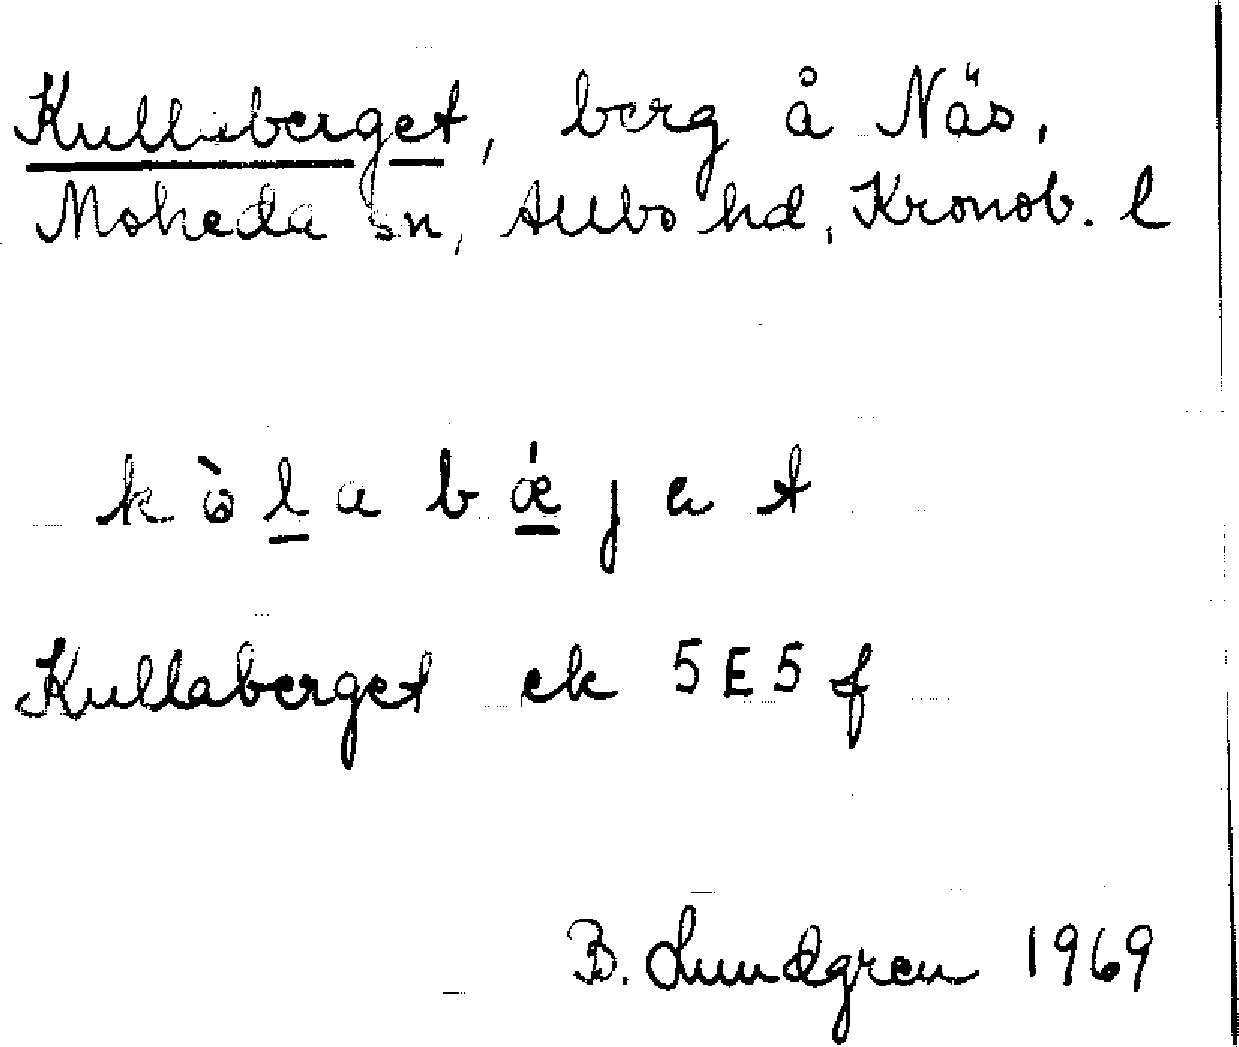 Kullaberget, berg å Näs,
Moheda sn, Allbo hd, Kronob. l
k ò l a b ǽ j a t
Kullaberget ek 5E5f
B. Lundgren 1969